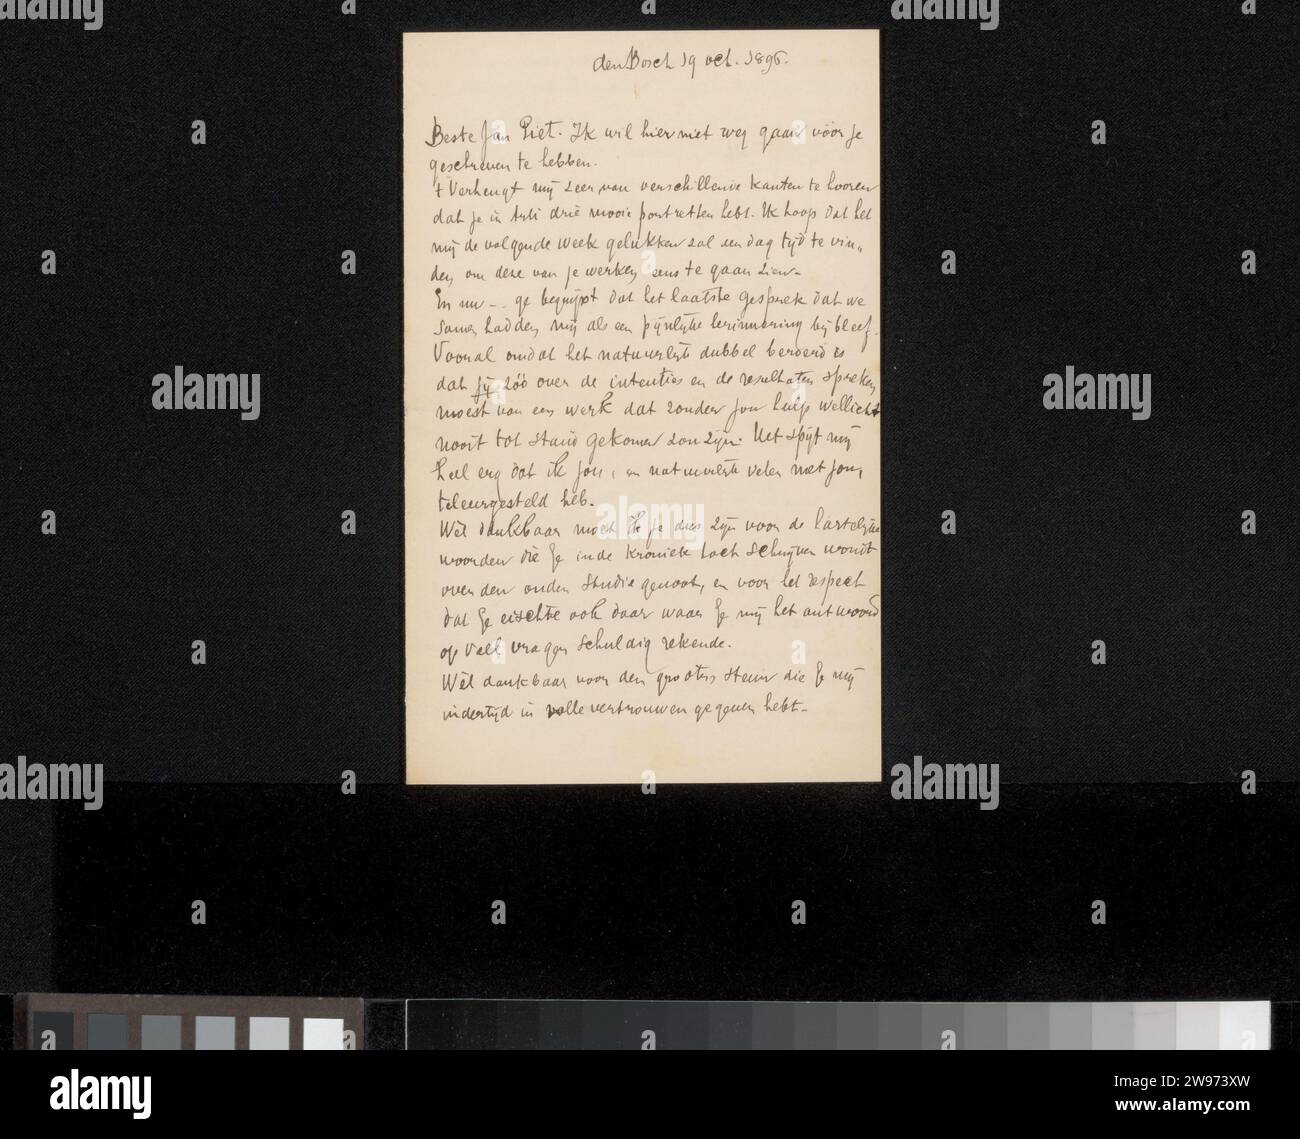 den Bosch 19 oct. 1896.
Beste Jan Piet. Ik wil hier niet weg gaan vóór je
geschreven te hebben.
't Verheugt mij zeer van verschillende kanten te hooren
dat je in Arti drie mooie portretten hebt. Ik hoop dat het
mij de volgende week gelukken zal een dag tijd te vin„
den om deze van je werken eens te gaan zien.
En nu -- ge begrijpt dat het laatste gesprek dat we
samen hadden mij als een pijnlijke herinnering bij bleef.
Vooral omdat het natuurlijk dubbel beroerd is
dat jij zóó over de intenties en de resultaten spreken
moest van een werk dat zonder jou hulp wellicht
nooit tot stand gekomen zou zijn. Het spijt mij
heel erg dat ik jou, en natuurlijk velen met jou,
teleurgesteld heb.
Wèl dankbaar moet ik je dus zijn voor de hartelijke
woorden die je in de Kroniek toch schrijven wondt
over den ouden studie genoot, en voor het respect
dat je eischte ook daar waar je mij het antwoord
op veel vragen schuldig rekende.
Wèl dankbaar voor den grooten steun die je mij
indertijd in volle vertrouwen gegeven hebt.
alamy
Image ID: 2W973XW
www.alamy.com